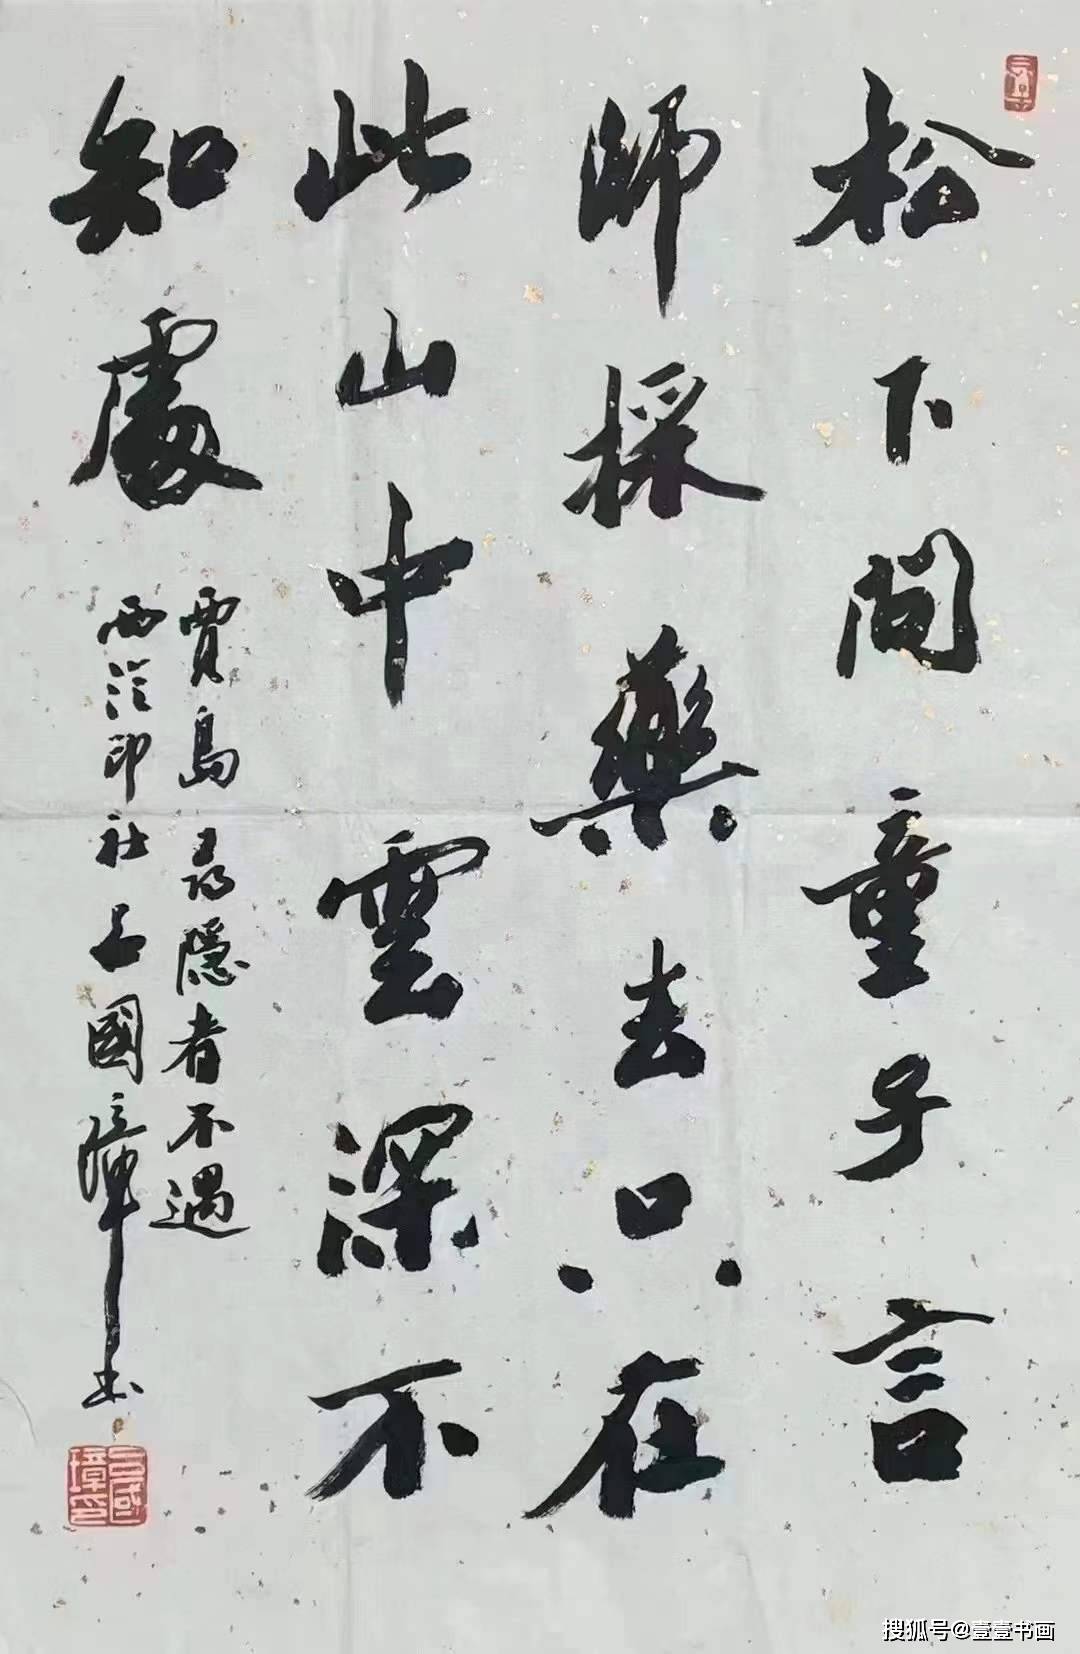 松下問童子言
師採藥去只在
此山中雲深不
知處
賈島尋隱者不遇
西泠印社呂國璋书
呂國璋印
搜狐号@壹壹书画